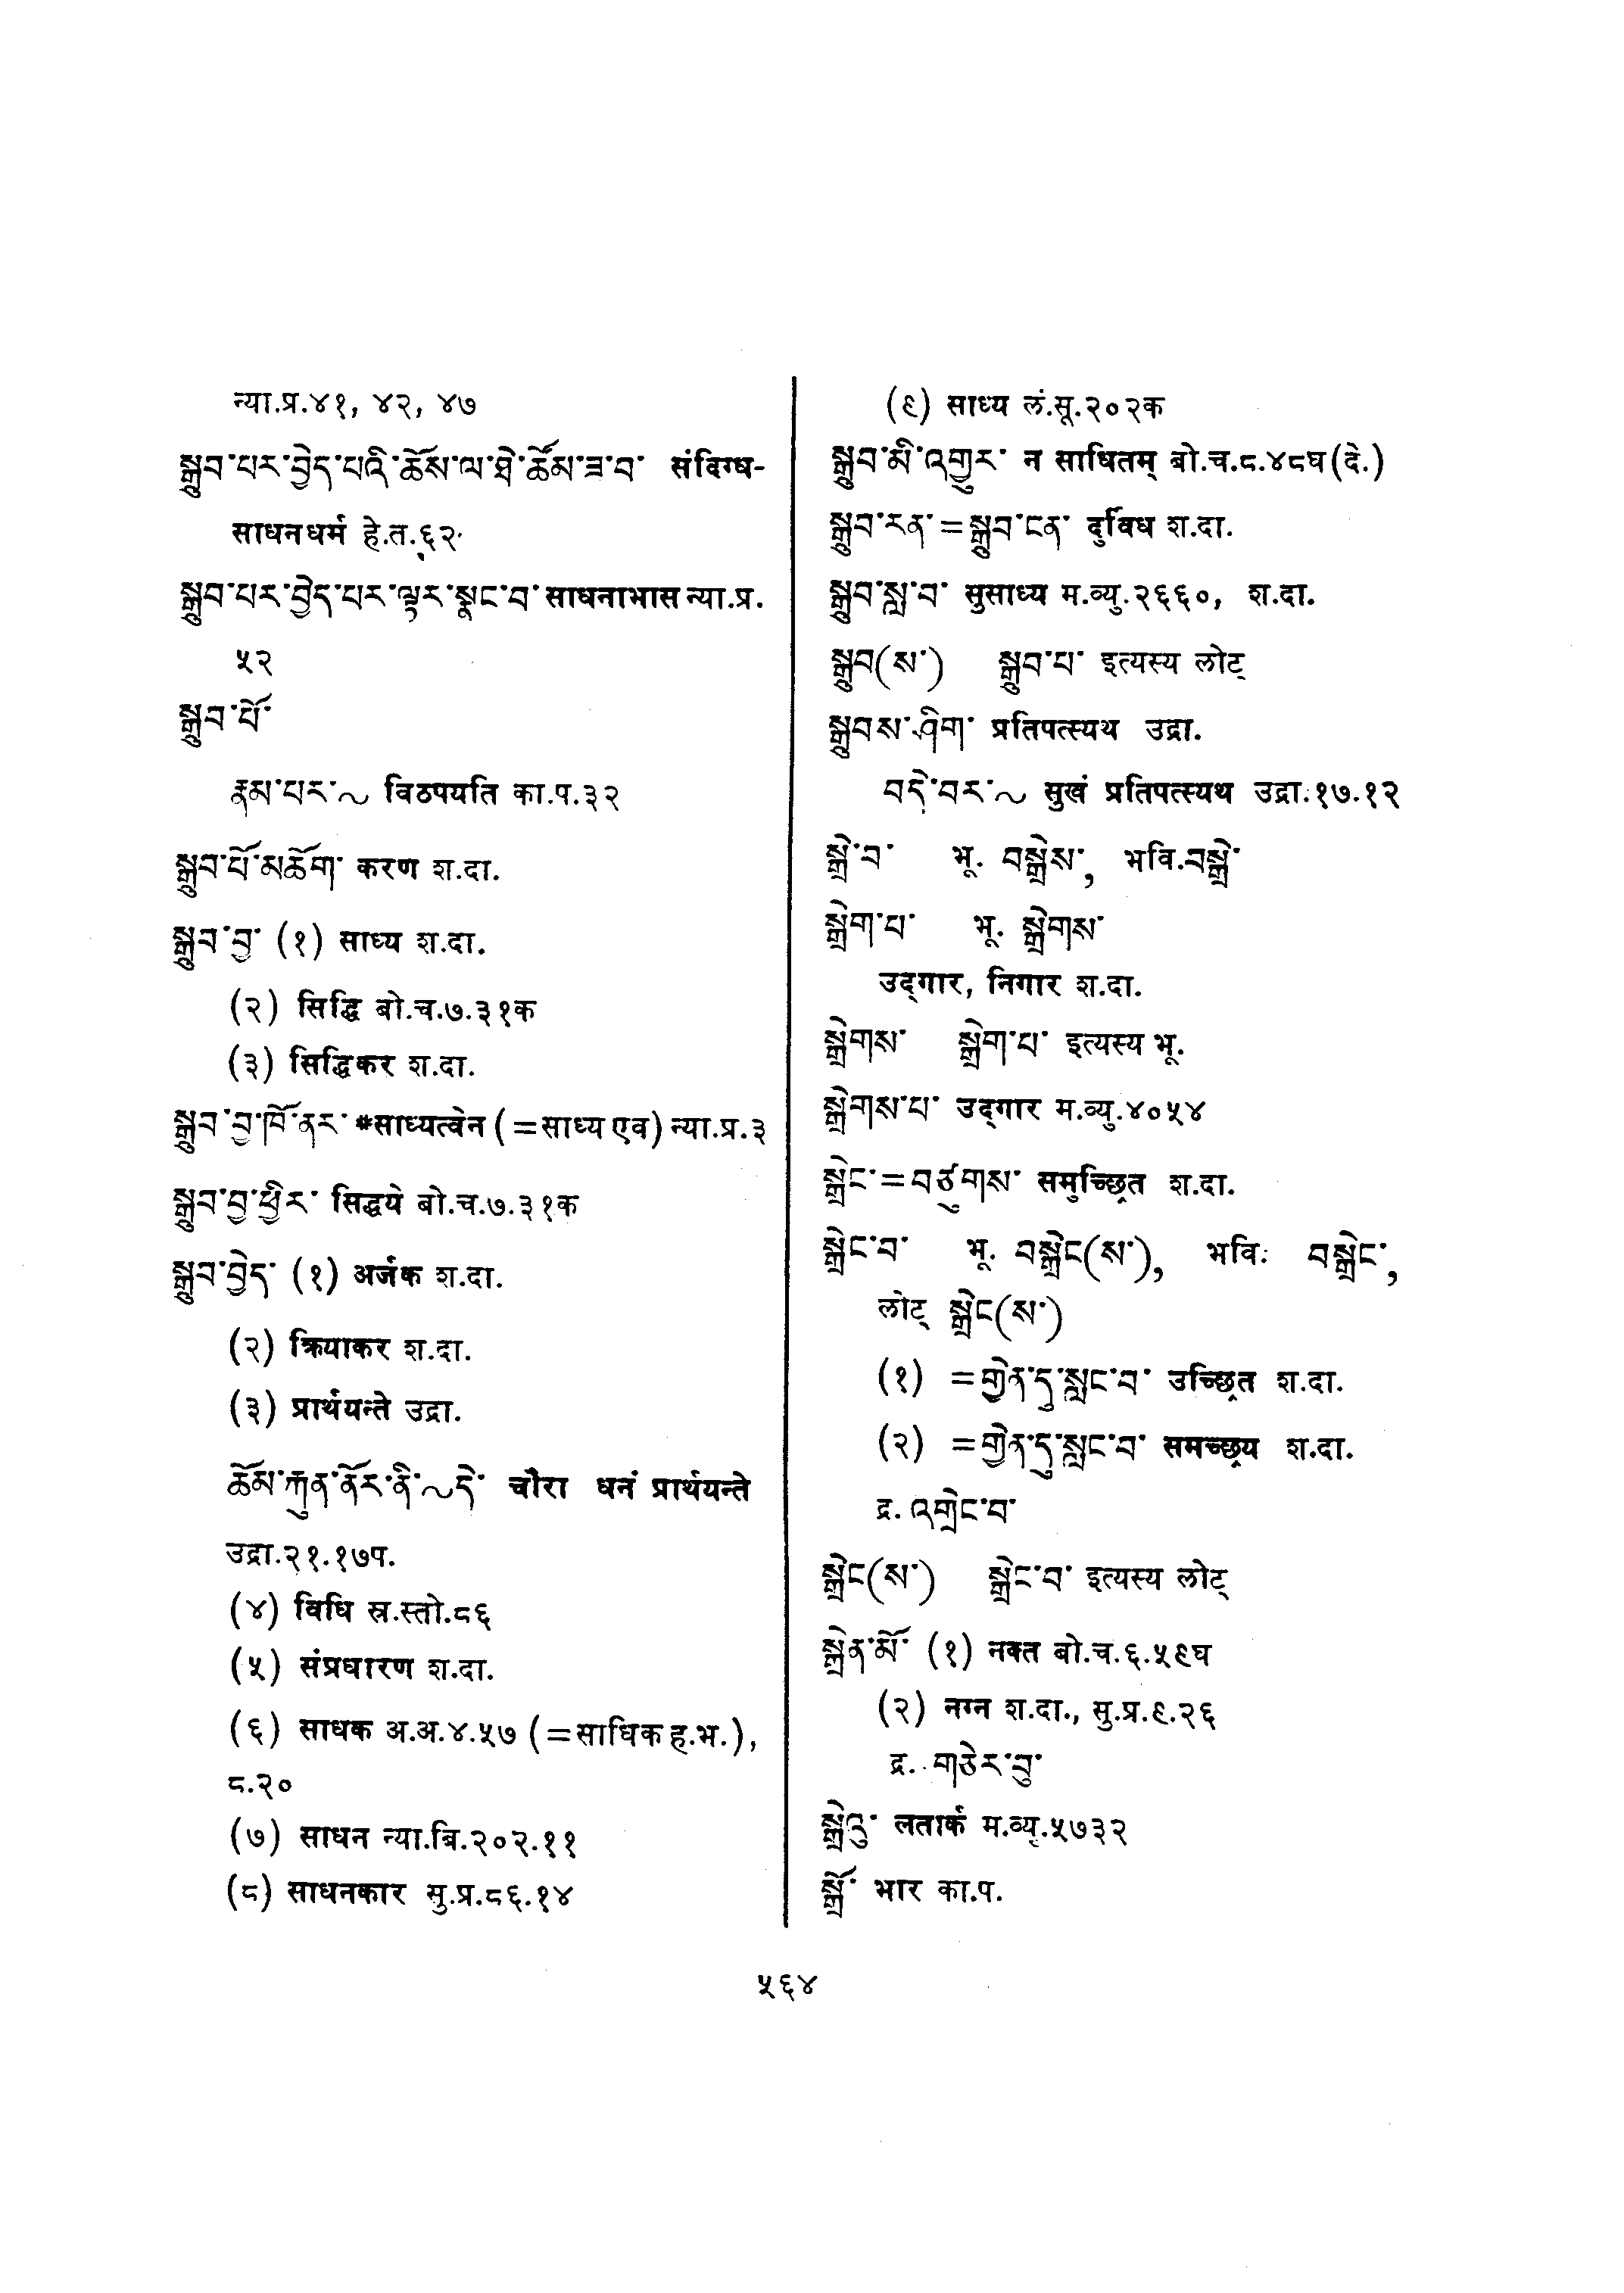 न्या.प्र.४१, ४२, ४७
སྒྲུབ་པར་བྱེད་པའི་ཆོས་ལ་ཐེ་ཚོམ་ཟ་བ་ संदिग्ध-
साधनधर्म हे.त.६२
སྒྲུབ་པར་བྱེད་པར་ལྟར་སྣང་བ་ साधनाभास न्या.प्र.
५२
སྒྲུབ་པོ་
རྣམ་པར་~ विठपयति का.प.३२
སྒྲུབ་པོ་མཆོག་ करण श.दा.
སྒྲུབ་བྱ་ (१) साध्य श.दा.
(२) सिद्धि बो.च.७.३१क
(३) सिद्धिकर श.दा.
སྒྲུབ་བྱ་ཁོ་ནར་ *साध्यत्वेन (=साध्य एव) न्या.प्र.३
སྒྲུབ་བྱ་ཕྱིར་ सिद्धये बो.च.७.३१क
སྒྲུབ་བྱེད་ (१) अर्जक श.दा.
(२) क्रियाकर श.दा.
(३) प्रार्थयन्ते उद्रा.
ཆོམ་རྐུན་ནོར་ནི་~དེ་ चौरा धनं प्रार्थयन्ते
उद्रा.२१.१७प.
(४) विधि स्र.स्तो.८६
(५) संप्रधारण श.दा.
(६) साधक अ.अ.४.५७ (=साधिक ह.भ.),
८.२०
(७) साधन न्या.बि.२०२.११
(८) साधनकार सु.प्र.८६.१४
(९) साध्य लं.सू.२०२क
སྒྲུབ་མི་འགྱུར་ न साधितम् बो.च.८.४८घ(दे.)
སྒྲུབ་རན་=སྒྲུབ་ངན་ दुर्विध श.दा.
སྒྲུབ་སླ་བ་ सुसाध्य म.व्यु.२६६०, श.दा.
སྒྲུབ(ས་) སྒྲུབ་པ་ इत्यस्य लोट्
སྒྲུབས་ཤིག་ प्रतिपत्स्यथ उद्रा.
བདེ་བར་~ सुखं प्रतिपत्स्यथ उद्रा.१७.१२
སྒྲེ་བ་ भू. བསྒྲེས་, भवि.བསྒྲེ་
སྒྲེག་པ་ भू. སྒྲེགས་
उद्गार, निगार श.दा.
སྒྲེགས་ སྒྲེག་པ་ इत्यस्य भू.
སྒྲེགས་པ་ उद्गार म.व्यु.४०५४
སྒྲེང་=བཙུགས་ समुच्छ्रित श.दा.
སྒྲེང་བ་ भू. བསྒྲེང(ས་), भवि. བསྒྲེང་,
लोट् སྒྲེང(ས་)
(१) =གྱེན་དུ་སླང་བ་ उच्छ्रित श.दा.
(२) =གྱེན་དུ་སླང་བ་ समच्छ्रय श.दा.
द्र. འགྲེང་བ་
སྒྲེང(ས་) སྒྲེང་བ་ इत्यस्य लोट्
སྒྲེན་མོ་ (१) नक्त बो.च.६.५९घ
(२) नग्न श.दा., सु.प्र.९.२६
द्र. གཅེར་བུ་
སྒྲེའུ་ लतार्क म.व्यु.५७३२
སྒྲོ་ भार का.प.
५६४